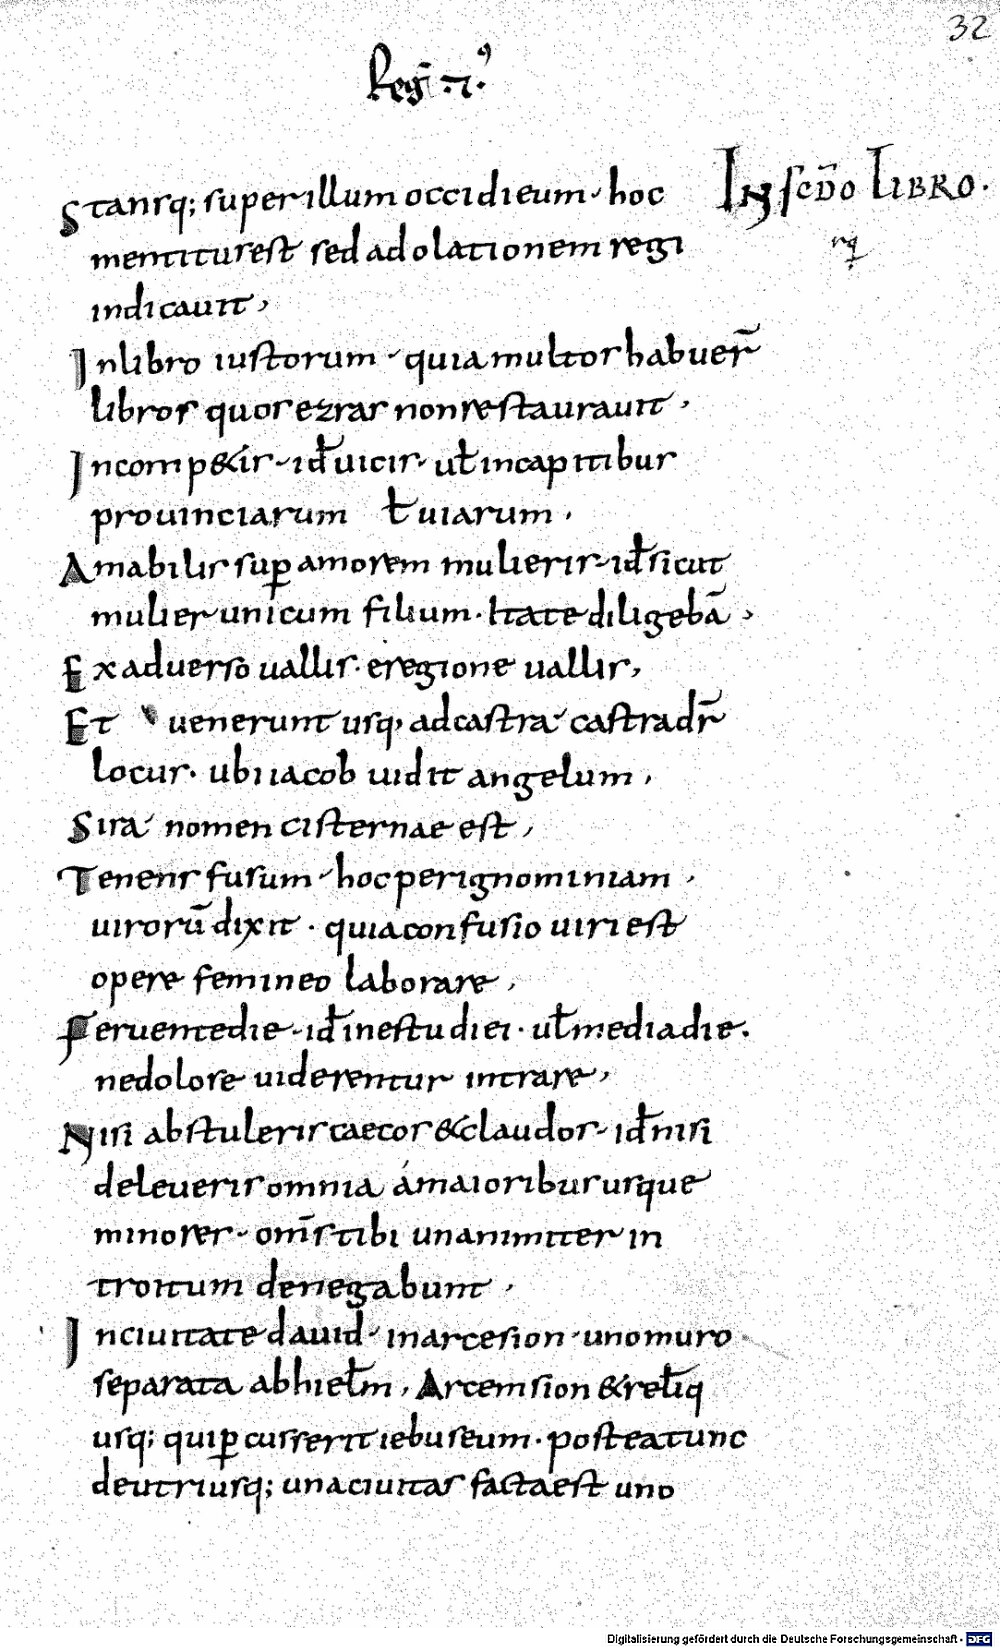 32
Reg̅ ·II·⁹
Stansq; super illum occidi eum · hoc
IN SCD̅O LIBRO.
rq̅
mentitur est sed adolationem regi
indicauit,
In libro iustorum · quia multos habuer̅
libros quos ezras non restaurauit,
In compitis · id̅ uicis · ul̅ in capitibus
prouinciarum ł uiarum.
Amabilis sup̲ amorem mulieris · id̅ sicut
mulier unicum filium · Ita te diligeba̅,
Ex aduerso uallis · e regione uallis,
Et uenerunt usq, ad castra · castra dr̅
locus · ubi iacob uidit angelum,
Sira nomen cisternae est,
Tenens fusum · hoc per ignominiam
uiroru̅ dixit · quia confusio uiri est
opere femineo laborare,
Feruente die · id̅ in estu diei · ul̅ media die.
ne dolore uiderentur intrare,
Nisi abstuleris caecos & claudos · id̅ nisi
deleueris omnia á maioribus usque
minores · om̅s tibi unanimiter in
troitum denegabunt,
In ciuitate dauid · in arce sion · uno muro
separata ab hiel̅m, Arcem sion & rel̅iq
usq; qui p̲cusserit iebuseum · postea tunc
de utriusq; una ciuitas facta est uno
Digitalisierung gefördert durch die Deutsche Forschungsgemeinschaft - DFG